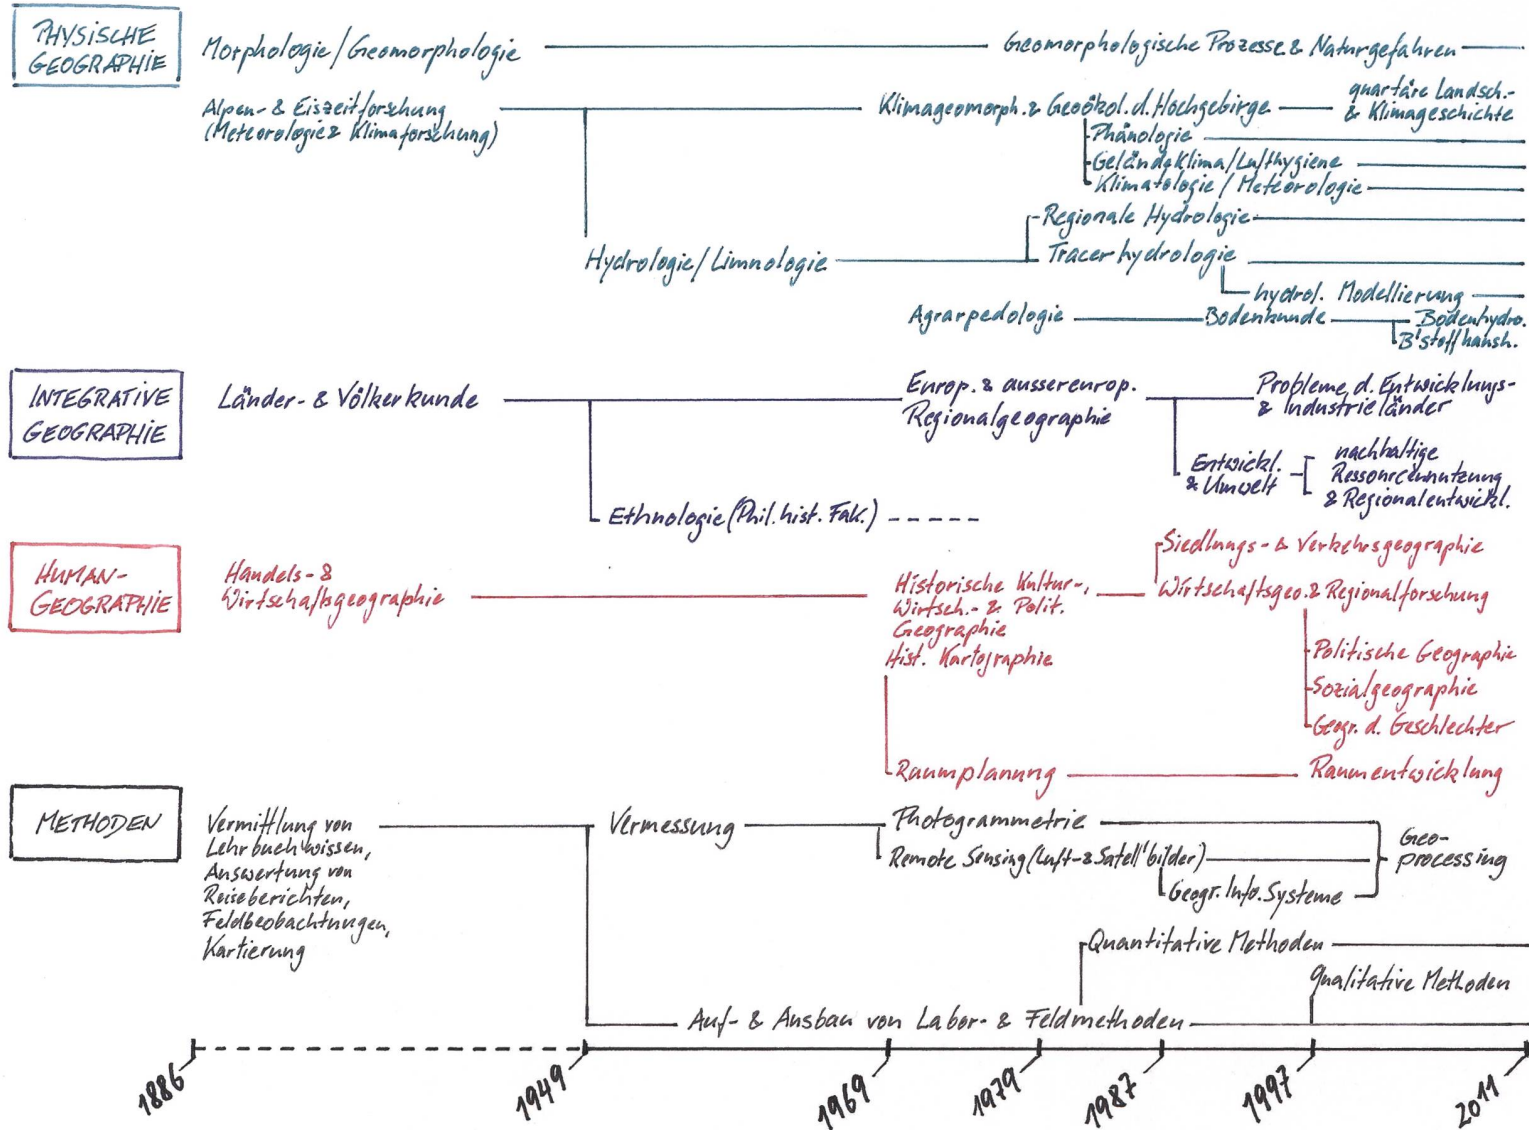 PHYSISCHE
GEOGRAPHIE
Morphologie/Geomorphologie
Geomorphologische Prozesse & Naturgefahren
Alpen- & Eiszeitforschung
(Meteorologie & Klimaforschung)
Klimageomorph. & Geoökol. d. Hochgebirge
quartäre Landsch.-
& Klimageschichte
Phänologie
Geländeklima/Lufthygiene
Klimatologie/Meteorologie
Regionale Hydrologie
Hydrologie/Limnologie
Tracerhydrologie
hydrol. Modellierung
Agrarpedologie
Bodenkunde
Bodenhydro.
B'stoffhaush.
INTEGRATIVE
GEOGRAPHIE
Länder- & Völkerkunde
Europ. & aussereurop.
Regionalgeographie
Probleme d. Entwicklungs-
& Industrieländer
Entwickl.
& Umwelt
nachhaltige
Ressourcennutzung
& Regionalentwickl.
Ethnologie (Phil. hist. Fak.)
HUMAN-
GEOGRAPHIE
Handels- &
Wirtschaftsgeographie
Historische Kultur-,
Wirtsch.- & Polit.
Geographie
Hist. Kartographie
Siedlungs- & Verkehrsgeographie
Wirtschaftsgeo. & Regionalforschung
Politische Geographie
Sozialgeographie
Geogr. d. Geschlechter
Raumplanung
Raumentwicklung
METHODEN
Vermittlung von
Lehrbuchwissen,
Auswertung von
Reiseberichten,
Feldbeobachtungen,
Kartierung
Vermessung
Photogrammetrie
Remote Sensing (Luft- & Satell'bilder)
Geogr. Info. Systeme
Geo-
processing
Quantitative Methoden
Qualitative Methoden
Auf- & Ausbau von Labor- & Feldmethoden
1886
1949
1969
1979
1987
1997
2011